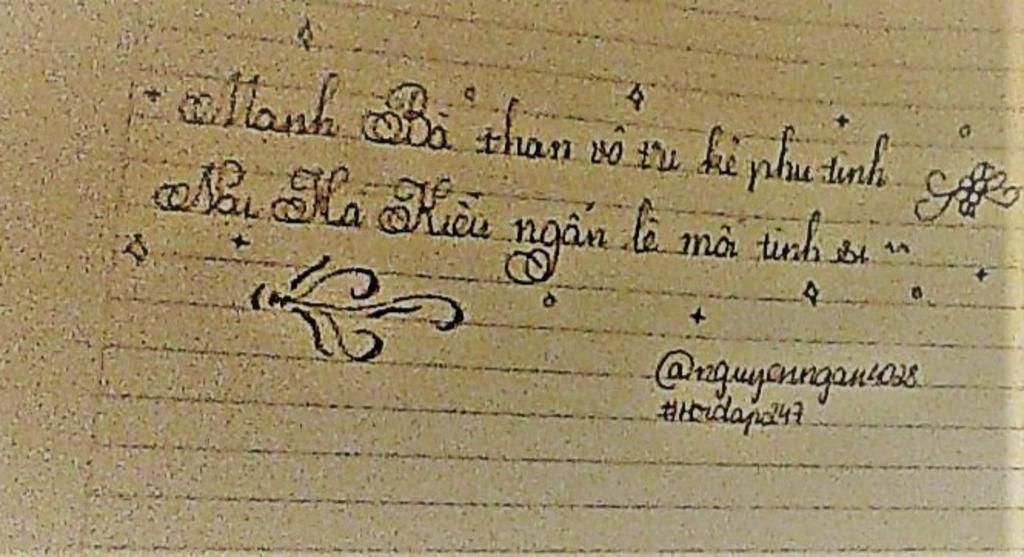 " Mạnh Bà than vô tư kẻ phụ tình
Nại Hà Kiều ngấn lệ mỗi tình si "
@nguyenngan4028
#Hoidap247